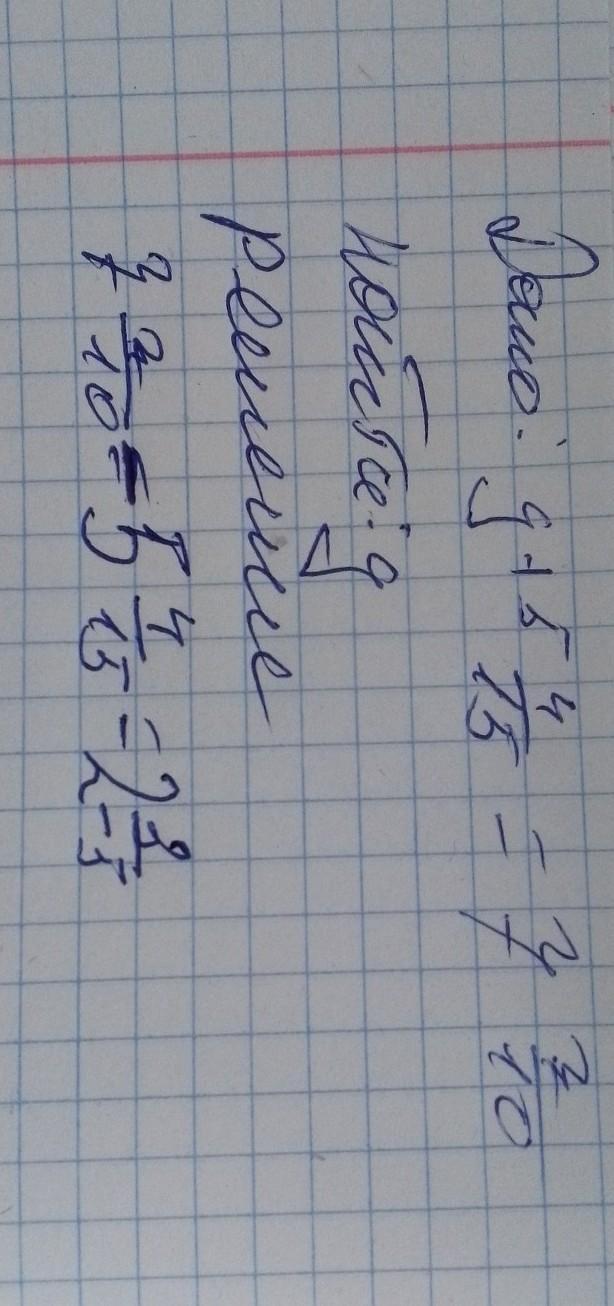 Дано: y + 5 4/15 = 7 7/10
найти: y
Решение
7 7/10 - 5 4/15 = 2 3/-5